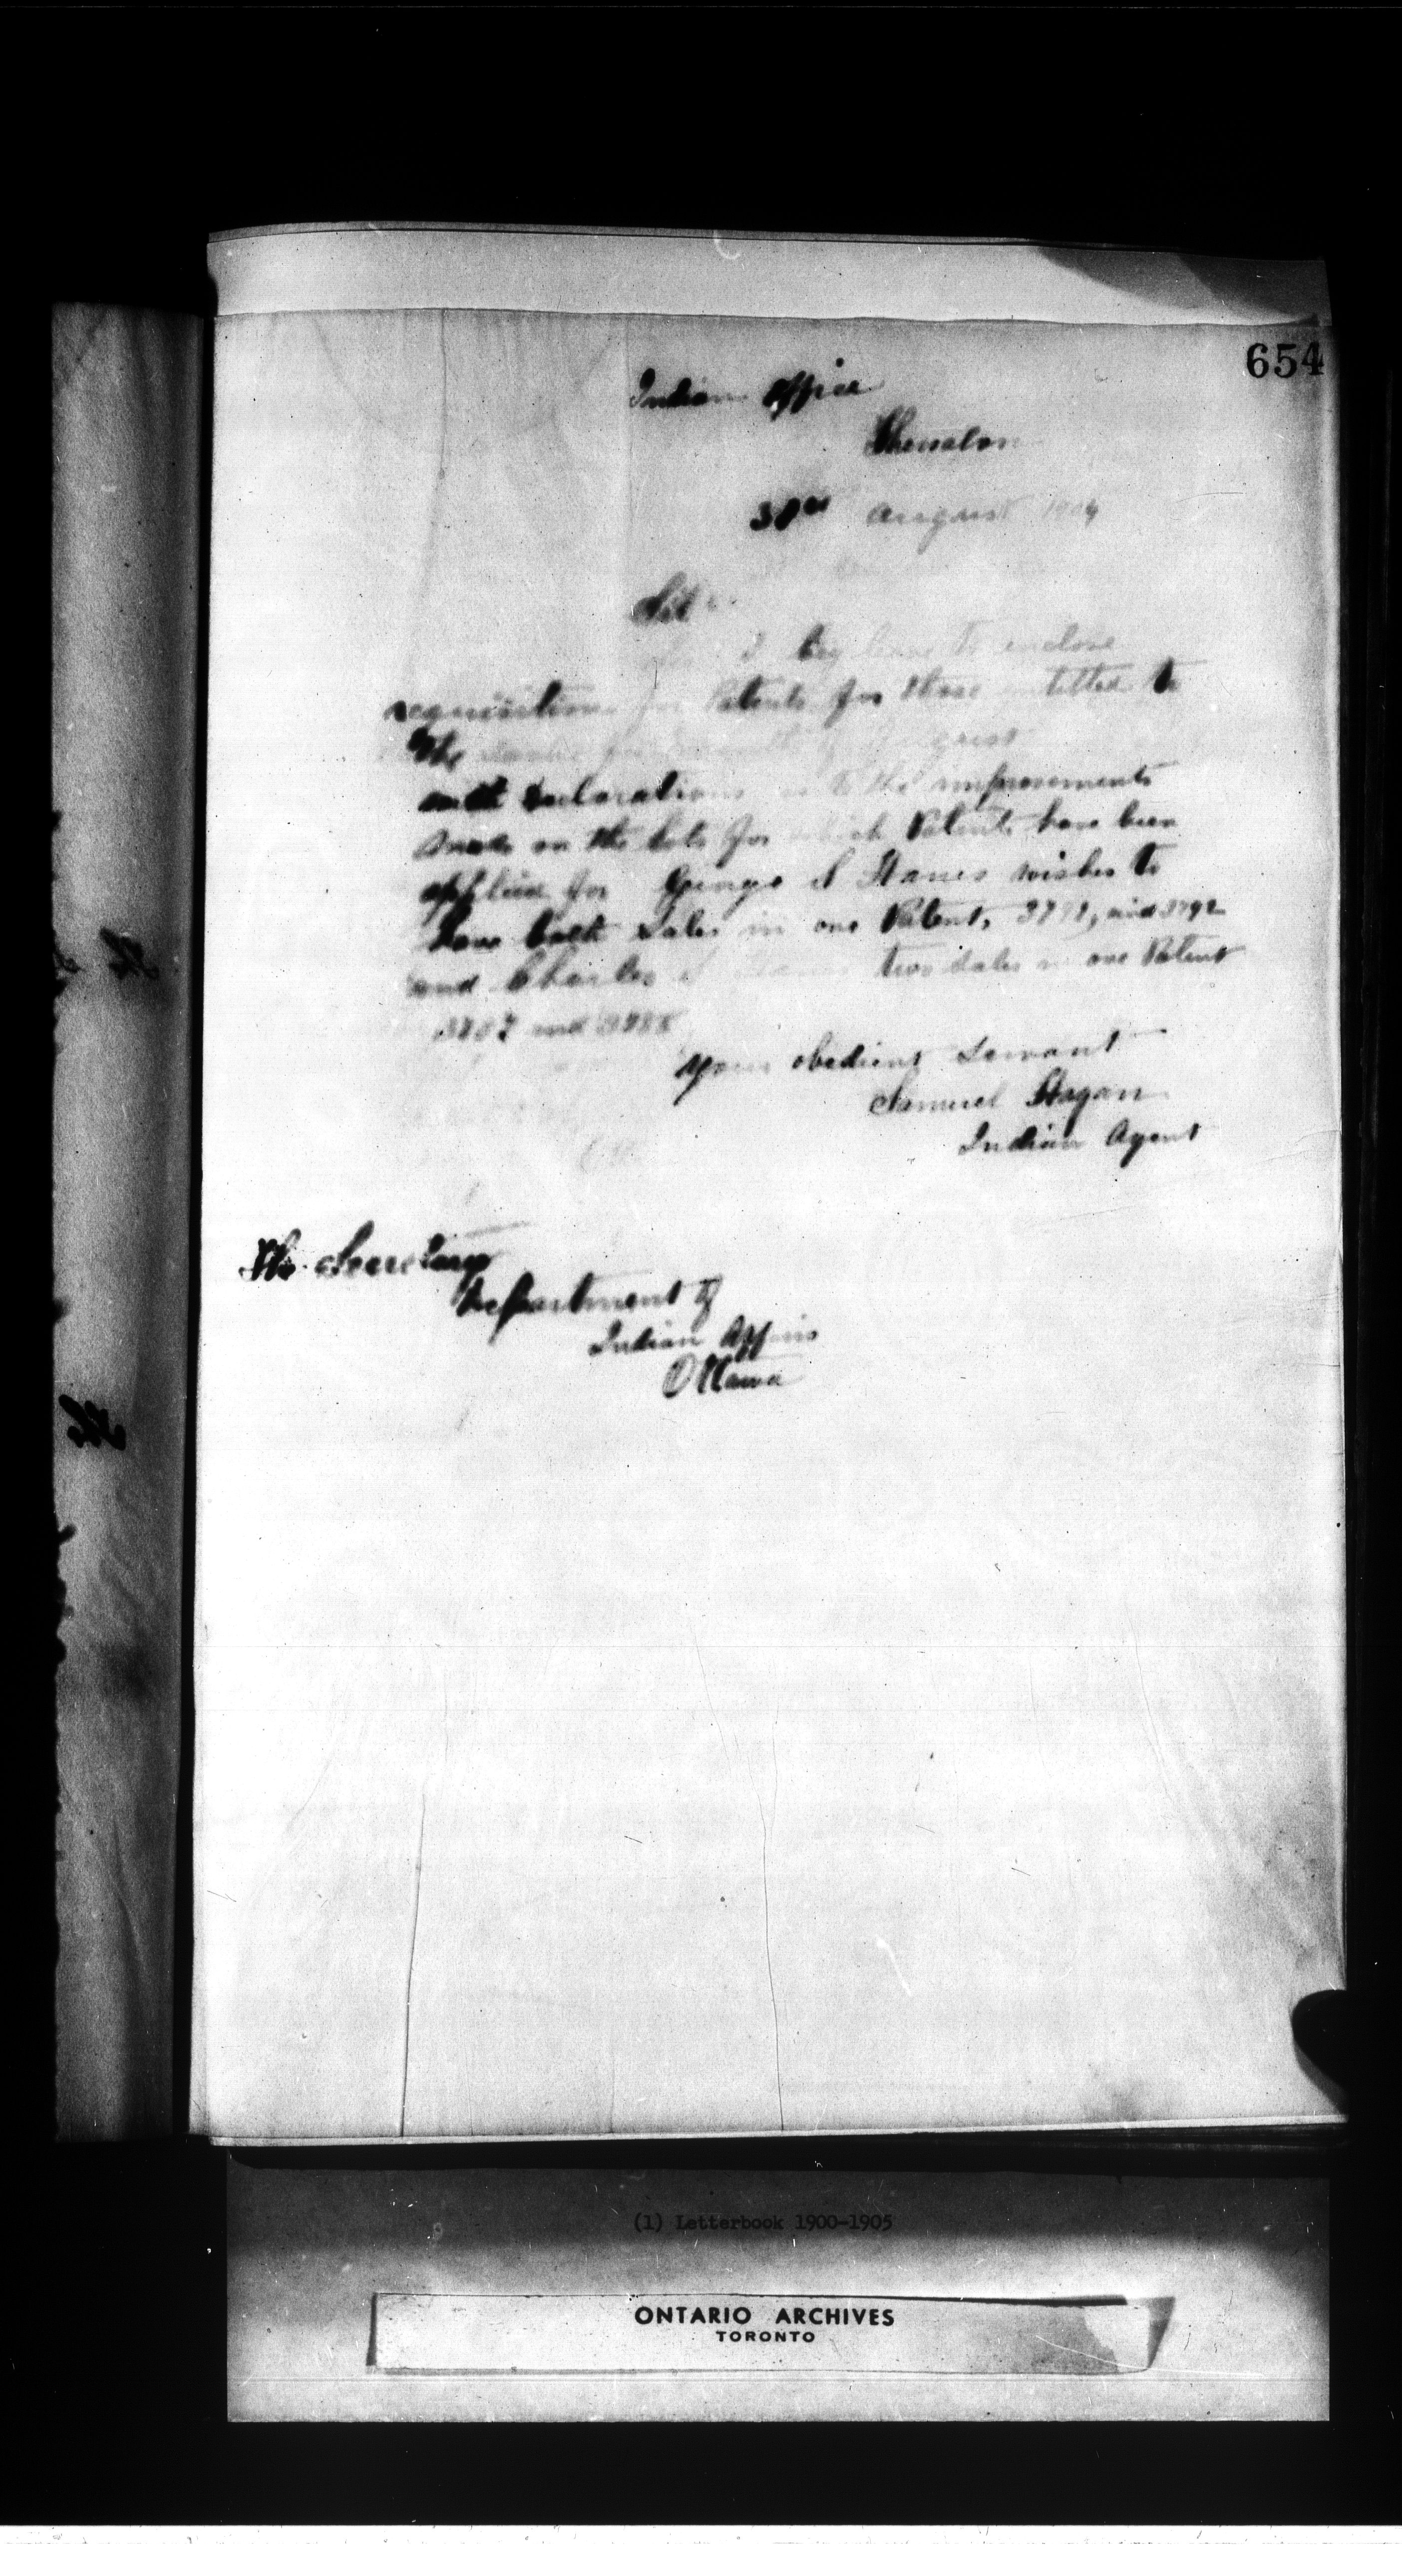 654
Indian Office
Thessalon
30th August 1904
Sir
I beg leave to enclose
requisition for Patents for those entitled to
the same for month of August
with declarations as to the improvements
made on the lots for which Patents have been
applied for George S Hanes wishes to
have both Sales in one Patent, 3791, and 3792
and Charles two Sales in one Patent
3787 and 3788
Your obedient Servant
Samuel Hagan
Indian Agent
The Secretary
Department of
Indian Affairs
Ottawa
(1) Letterbook 1900-1905
ONTARIO ARCHIVES
TORONTO